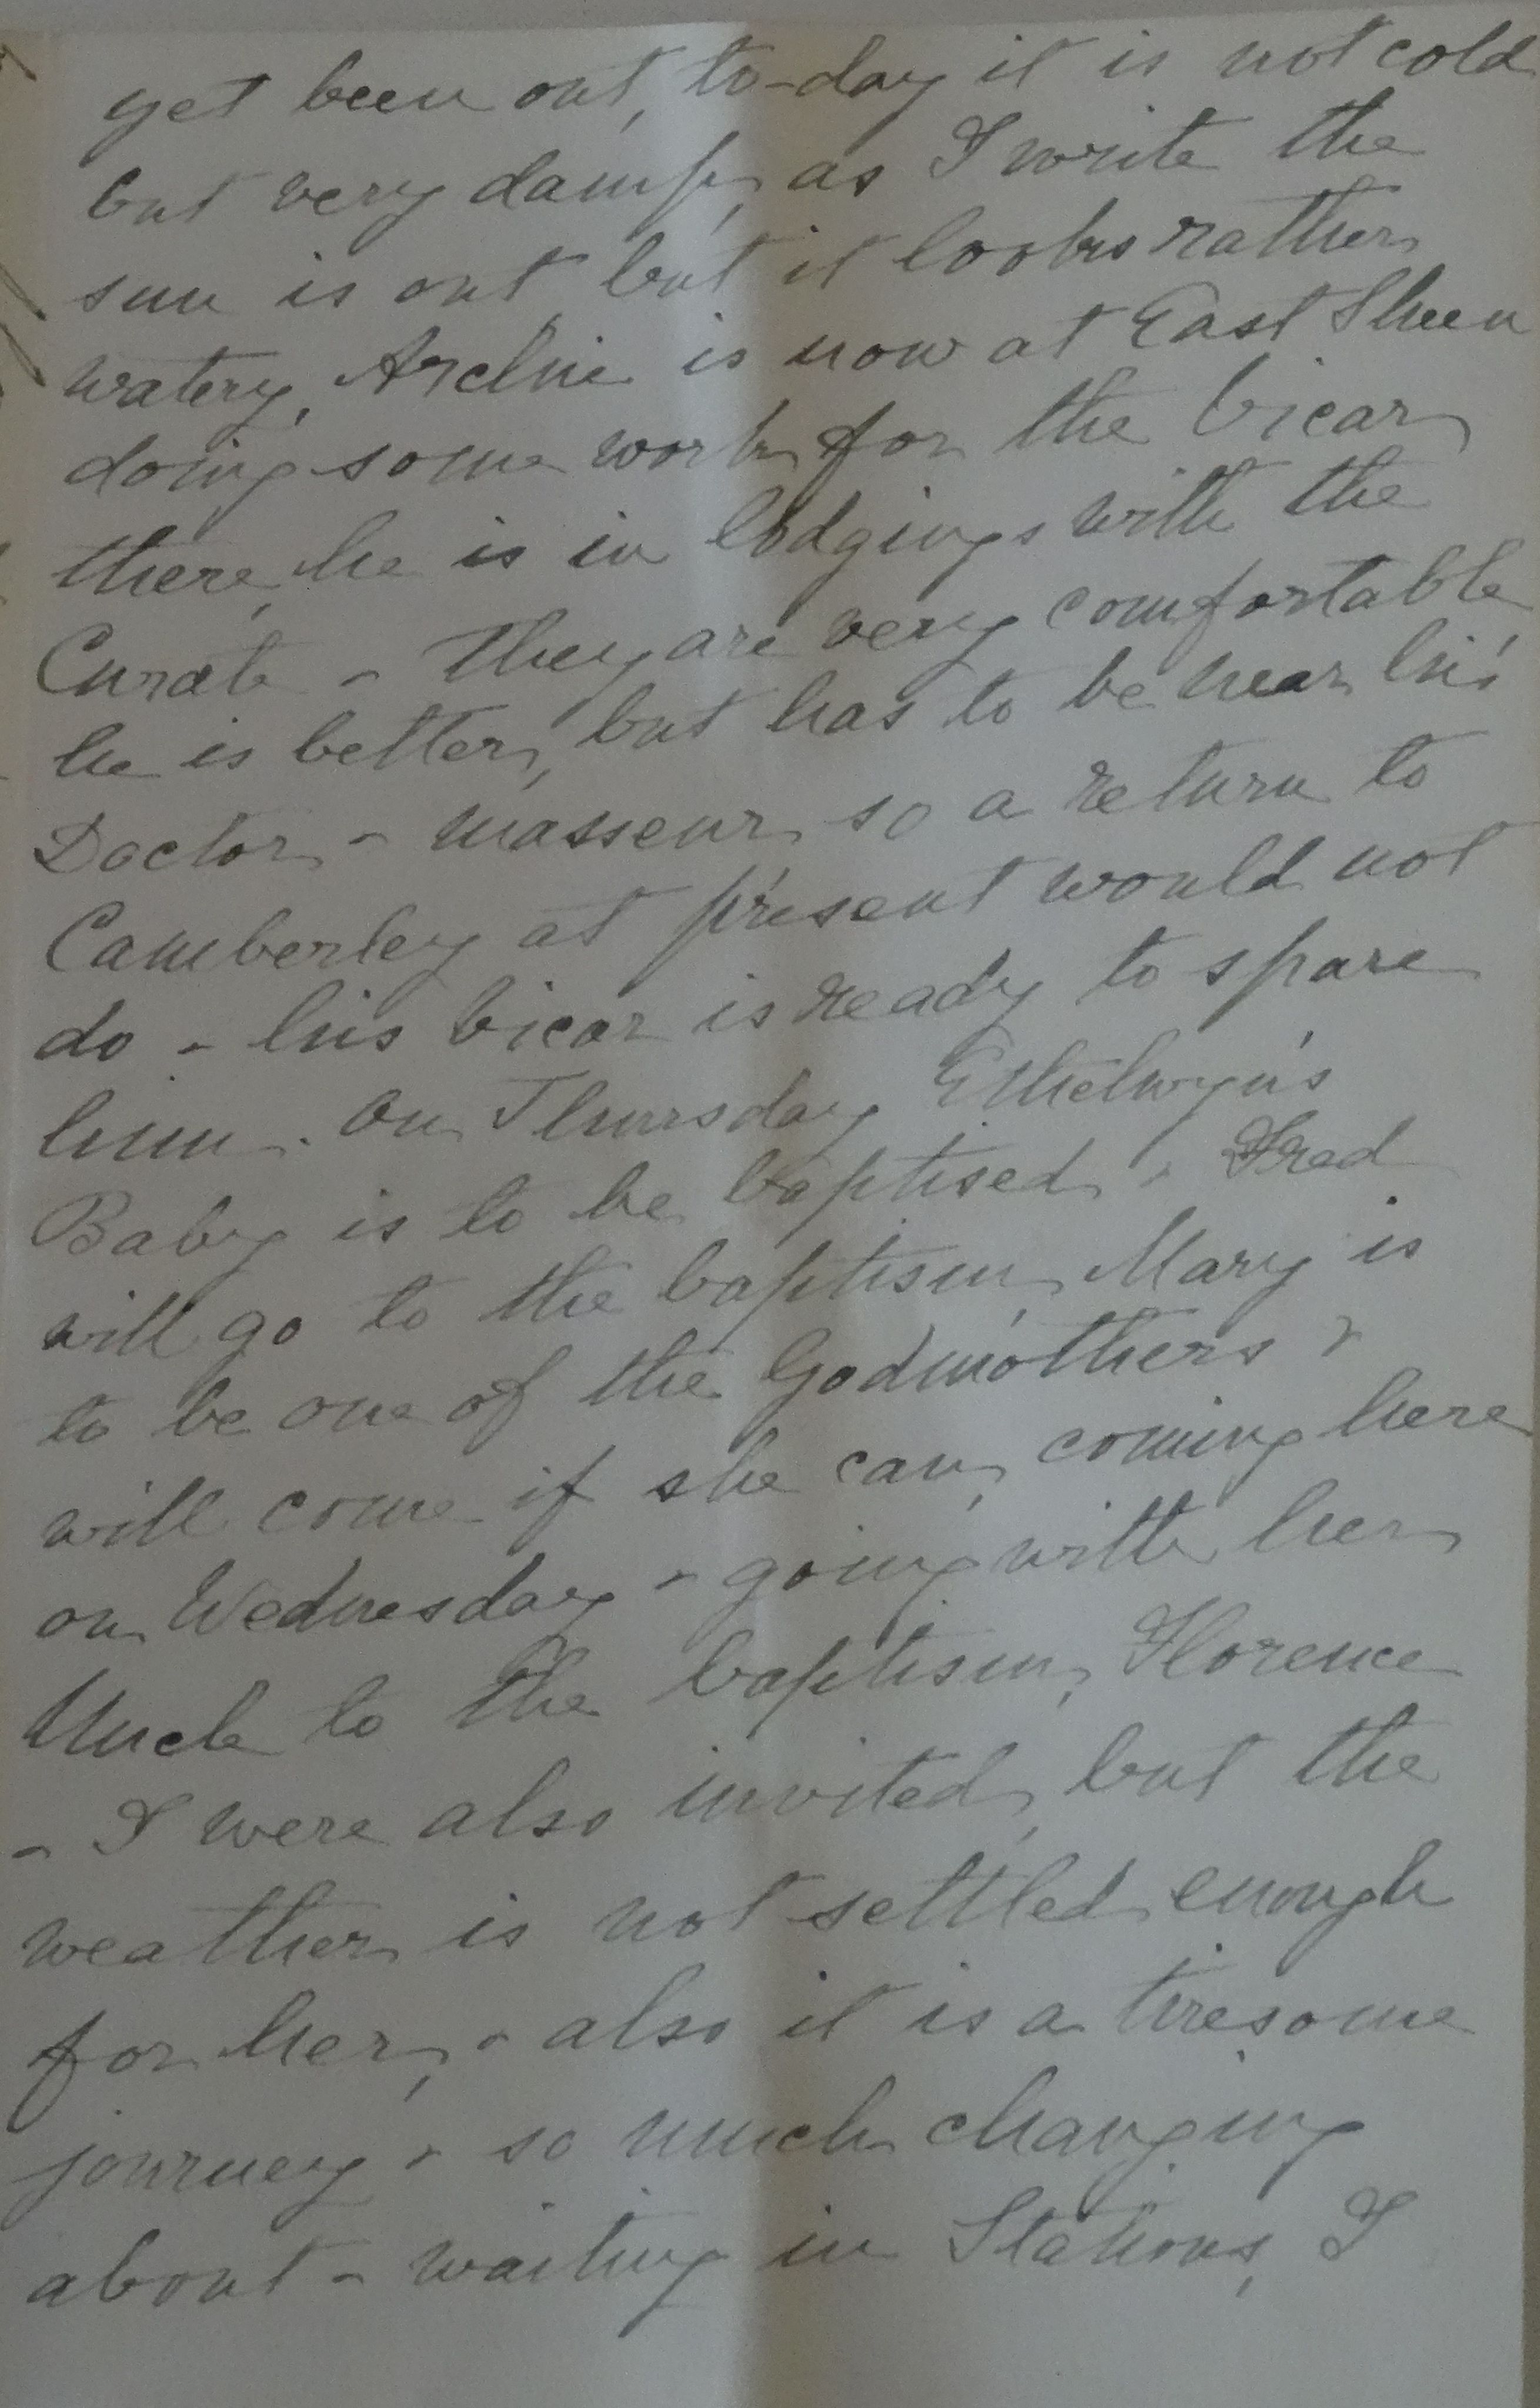 yet been out, to-day it is not cold
but very damp, as I write the
sun is out, but it looks rather
watery, Archie is now at East Sheen
doing some work for the Vicar
there, he is in lodgings with the
Curate - they are very comfortable
he is better, but has to be near his
Doctor - masseur so a return to
Camberley at present would not
do - his Vicar is ready to spare
him. On Thursday Ethelwyn's
Baby is to be baptised, & Fred
will go to the baptism, Mary is
to be one of the Godmothers &
will come if she can, coming here
on Wednesday & going with her
Uncle to the baptism, Florence
& I were also invited, but the
weather is not settled enough
for her, & also it is a tiresome
journey & so much changing
about & waiting in Stations, I